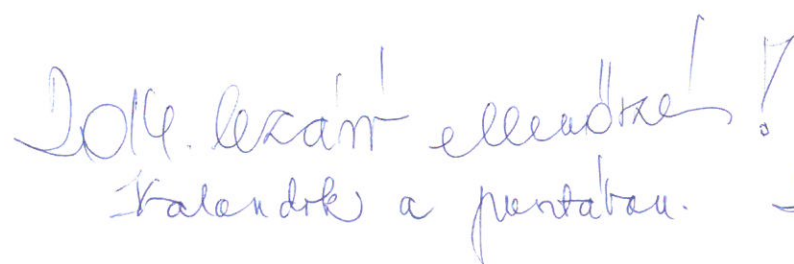 2014. lezárt ellenőrzés!
Kalandok a pusztában.